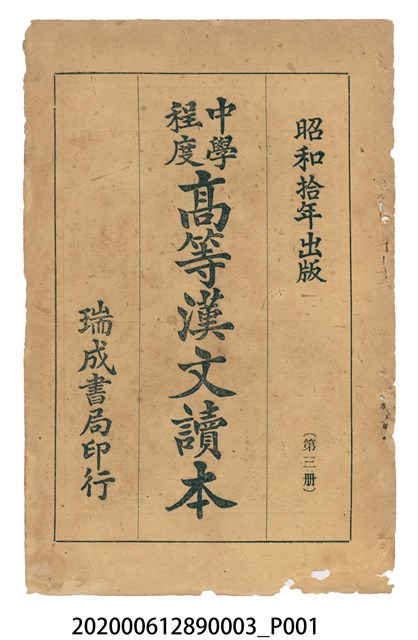 昭和拾年出版
（第三册）
中學程度
高等漢文讀本
瑞成書局印行
202000612890003_P001